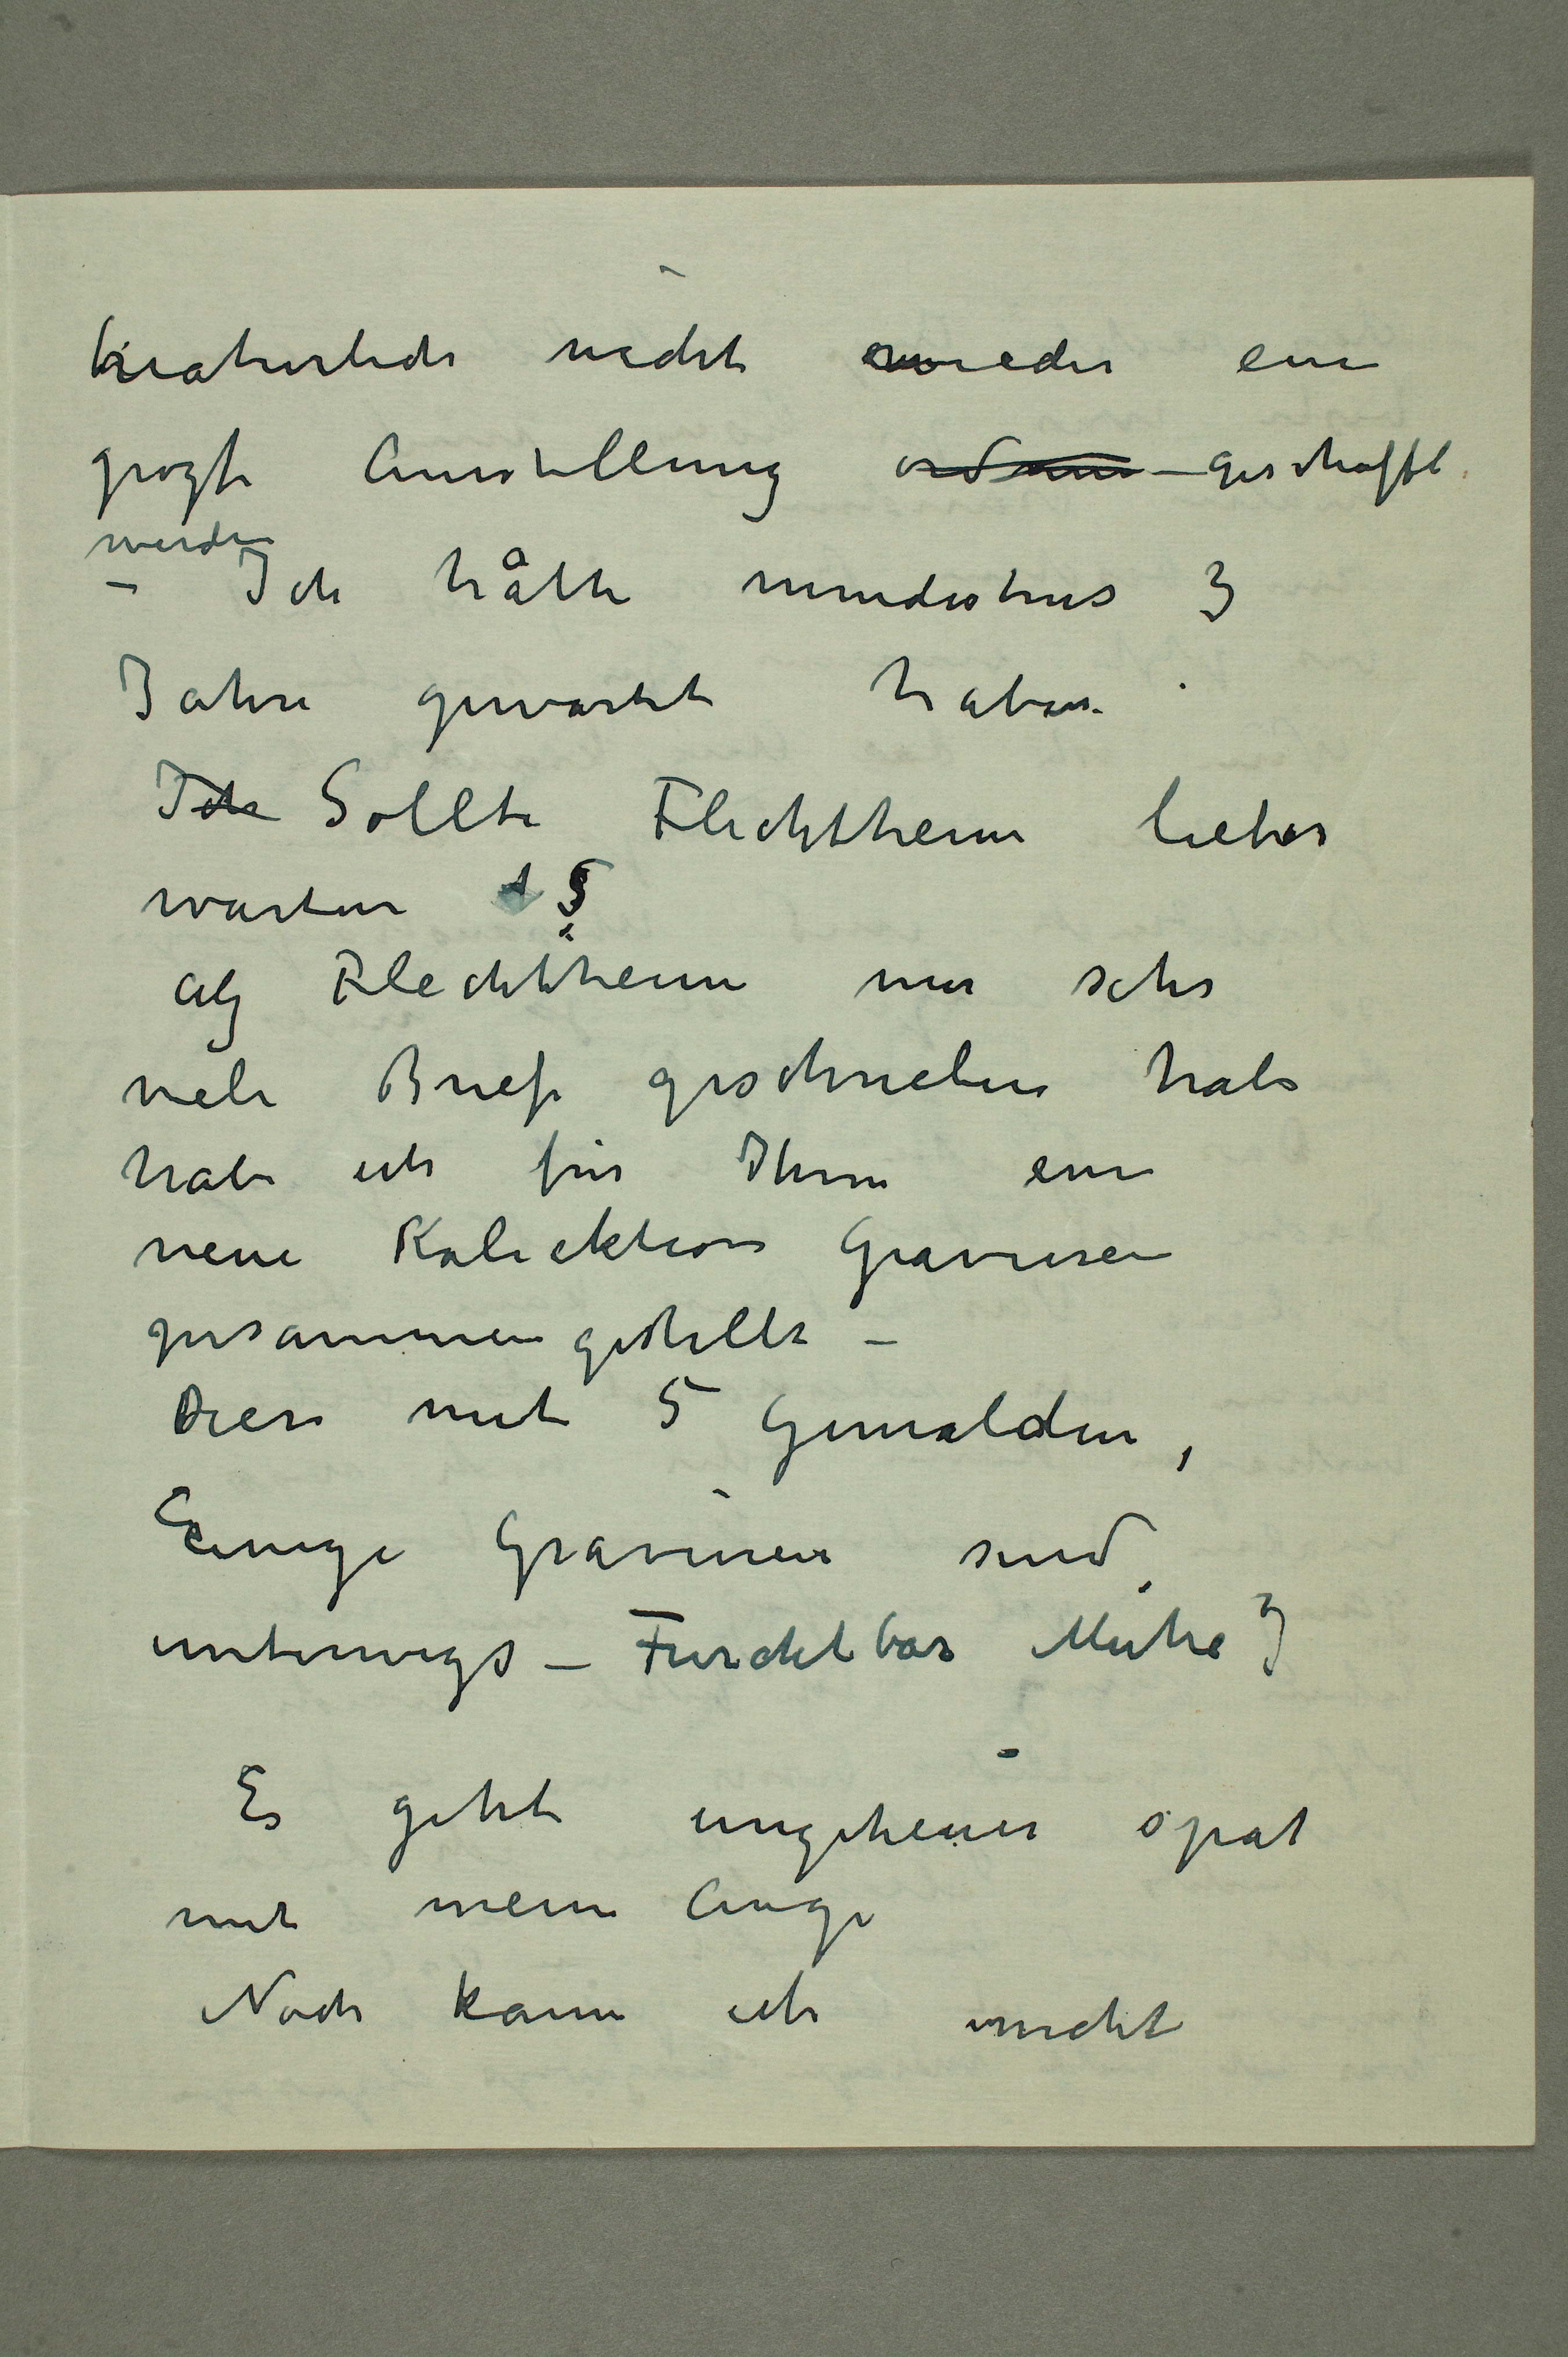 naturlich nicht wieder eine
grozse Ausstellung ordnen geschafft
werden
– Ich håtte mindestens 3
Jahre gewartet haben.
Ich Sollte Flechtheim lieber
warten
Als Flechtheim mir sehr
viele Briefe geschrieben hat
habe ich für Ihnen eine
neue Kolektion Gravuren
zusammengestellt –
Diese mit 5 Gemälden,
Einige Gravuren sind
unterwegs – Furchtbar Mühe
Es geht ungeheuer spat
mit meine Auge
Noch kann ich nicht